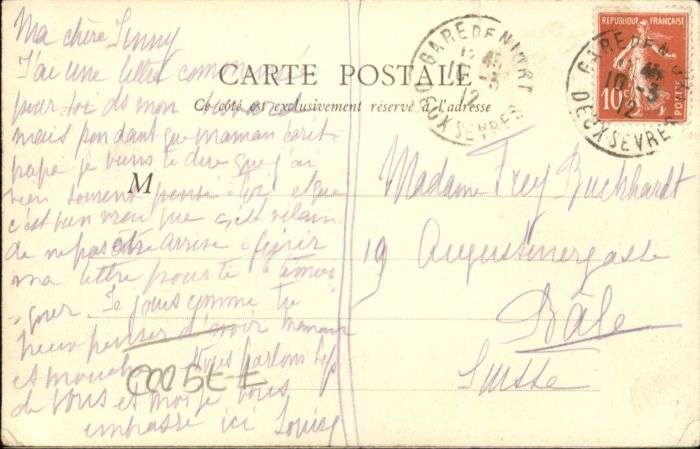 CARTE POSTALE
Ce côté est exclusivement réservé à l'adresse
M
Ma chère Jenny
J'ai une lettre commencée
pour toi ds mon
mais pendant que maman écrit
papa je viens te dire que j'ai
bien souvent pensé toi et que
c'est bien vrai que c'est vilain
de ne pas être arrivé finir
ma lettre pour te
Je jouis comme tu
peux penser d'avoir maman
et Nous parlons
de vous et moi je vous
embrasse ici Louisy
Madame Frey Burckhardt
19 Augustinergasse
Bâle
Suisse
REPUBLIQUE FRANÇAISE
10c
POSTES
GARE DE NIORT
12 45
10 -3
12
DEUX SEVRES
GARE DE NIORT
45
10 -3
12
DEUX SEVRES